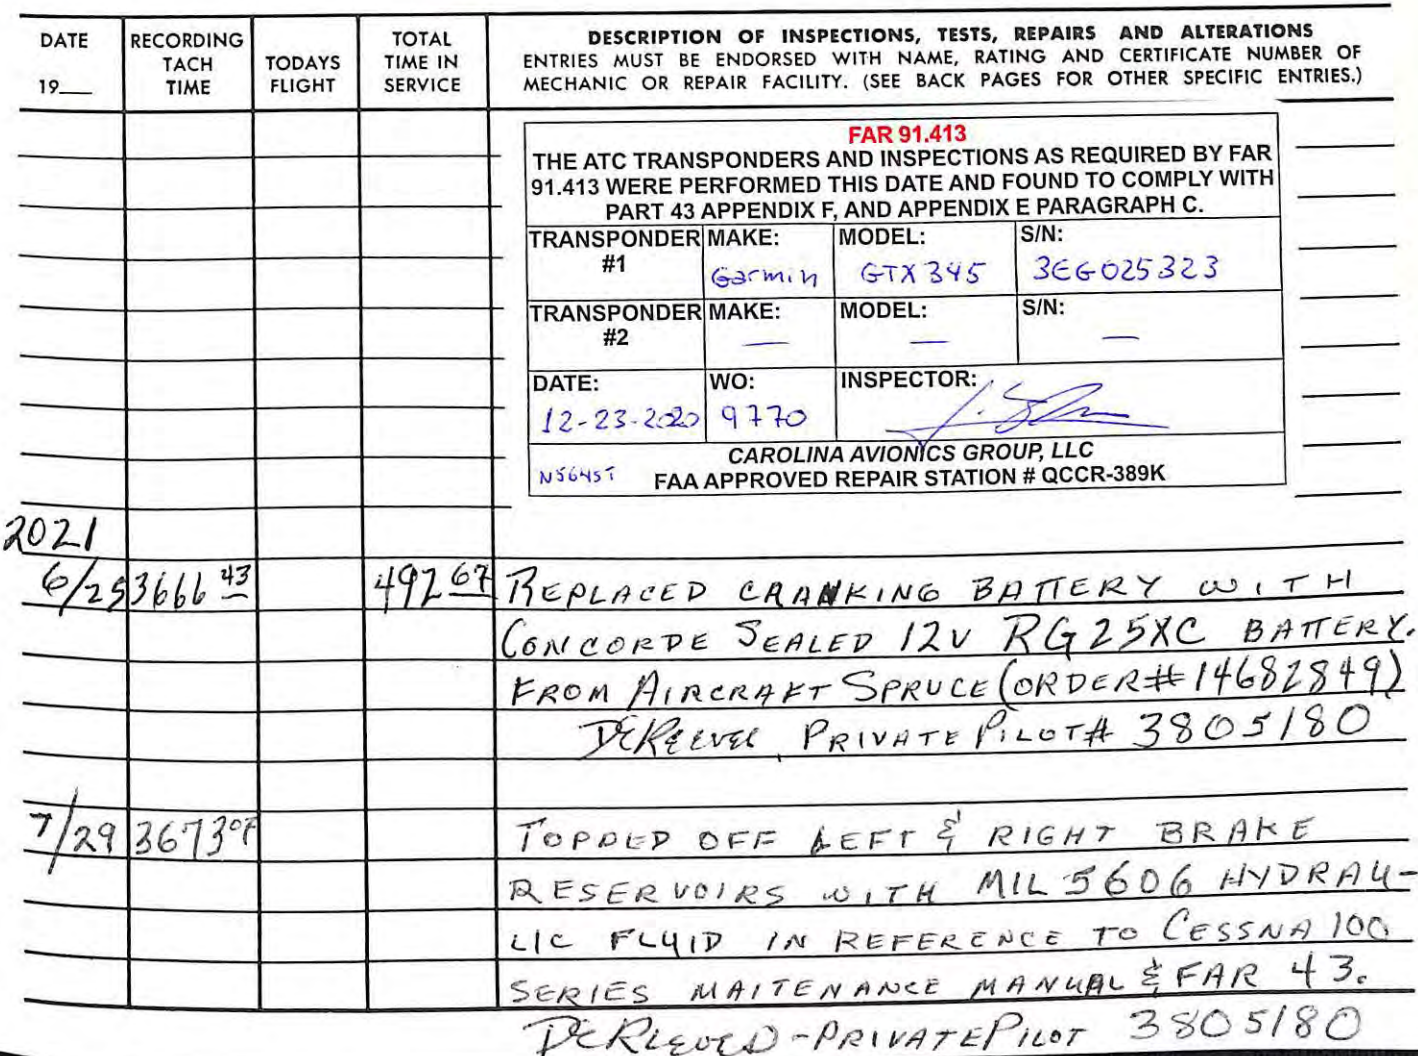 DATE RECORDING TACH TIME TODAYS FLIGHT TOTAL TIME IN SERVICE DESCRIPTION OF INSPECTIONS, TESTS, REPAIRS AND ALTERATIONS
19__ ENTRIES MUST BE ENDORSED WITH NAME, RATING AND CERTIFICATE NUMBER OF
MECHANIC OR REPAIR FACILITY. (SEE BACK PAGES FOR OTHER SPECIFIC ENTRIES.)
FAR 91.413
THE ATC TRANSPONDERS AND INSPECTIONS AS REQUIRED BY FAR
91.413 WERE PERFORMED THIS DATE AND FOUND TO COMPLY WITH
PART 43 APPENDIX F, AND APPENDIX E PARAGRAPH C.
TRANSPONDER MAKE: MODEL: S/N:
#1 Garmin GTX 345 3EG025323
TRANSPONDER MAKE: MODEL: S/N:
#2 — — —
DATE: WO: INSPECTOR:
12-23-2020 9770
CAROLINA AVIONICS GROUP, LLC
N5645T FAA APPROVED REPAIR STATION # QCCR-389K
2021
6/25 3666 43 492 67 REPLACED CRANKING BATTERY WITH
CONCORDE SEALED 12V RG25XC BATTERY.
FROM AIRCRAFT SPRUCE (ORDER# 14682849)
PRIVATE PILOT# 3805180
7/29 3673 07 TOPPED OFF LEFT & RIGHT BRAKE
RESERVOIRS WITH MIL 5606 HYDRAU-
LIC FLUID IN REFERENCE TO CESSNA 100
SERIES MAITENANCE MANUAL & FAR 43.
-PRIVATE PILOT 3805180